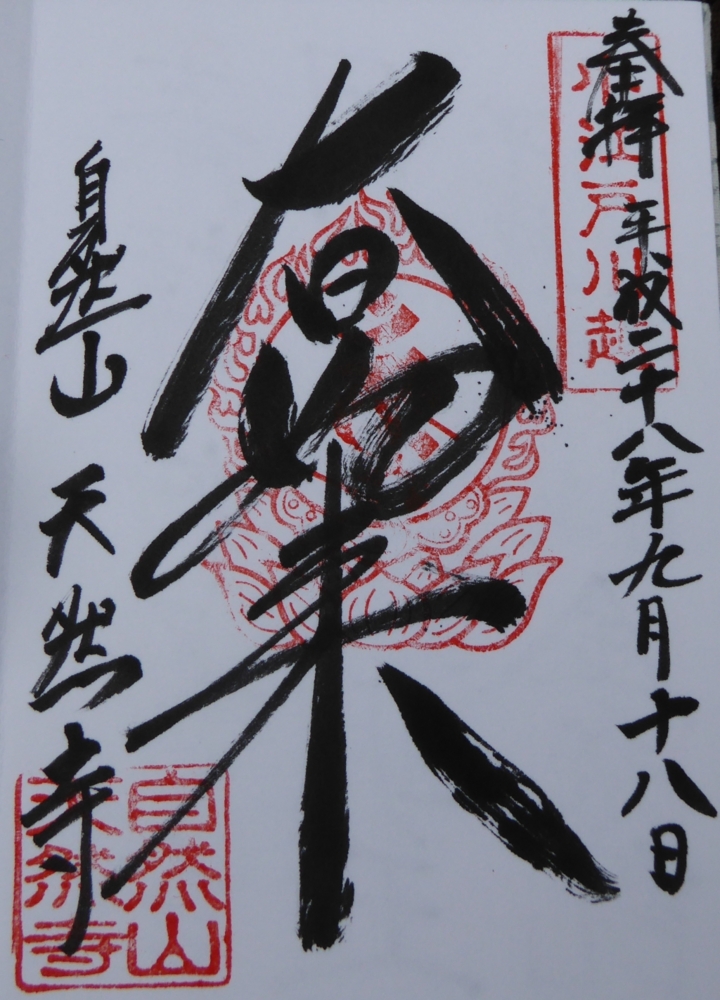 奉拝 平成二十八年九月十八日
小江戸川越
大日如来
自然山 天然寺
自然山
天然寺